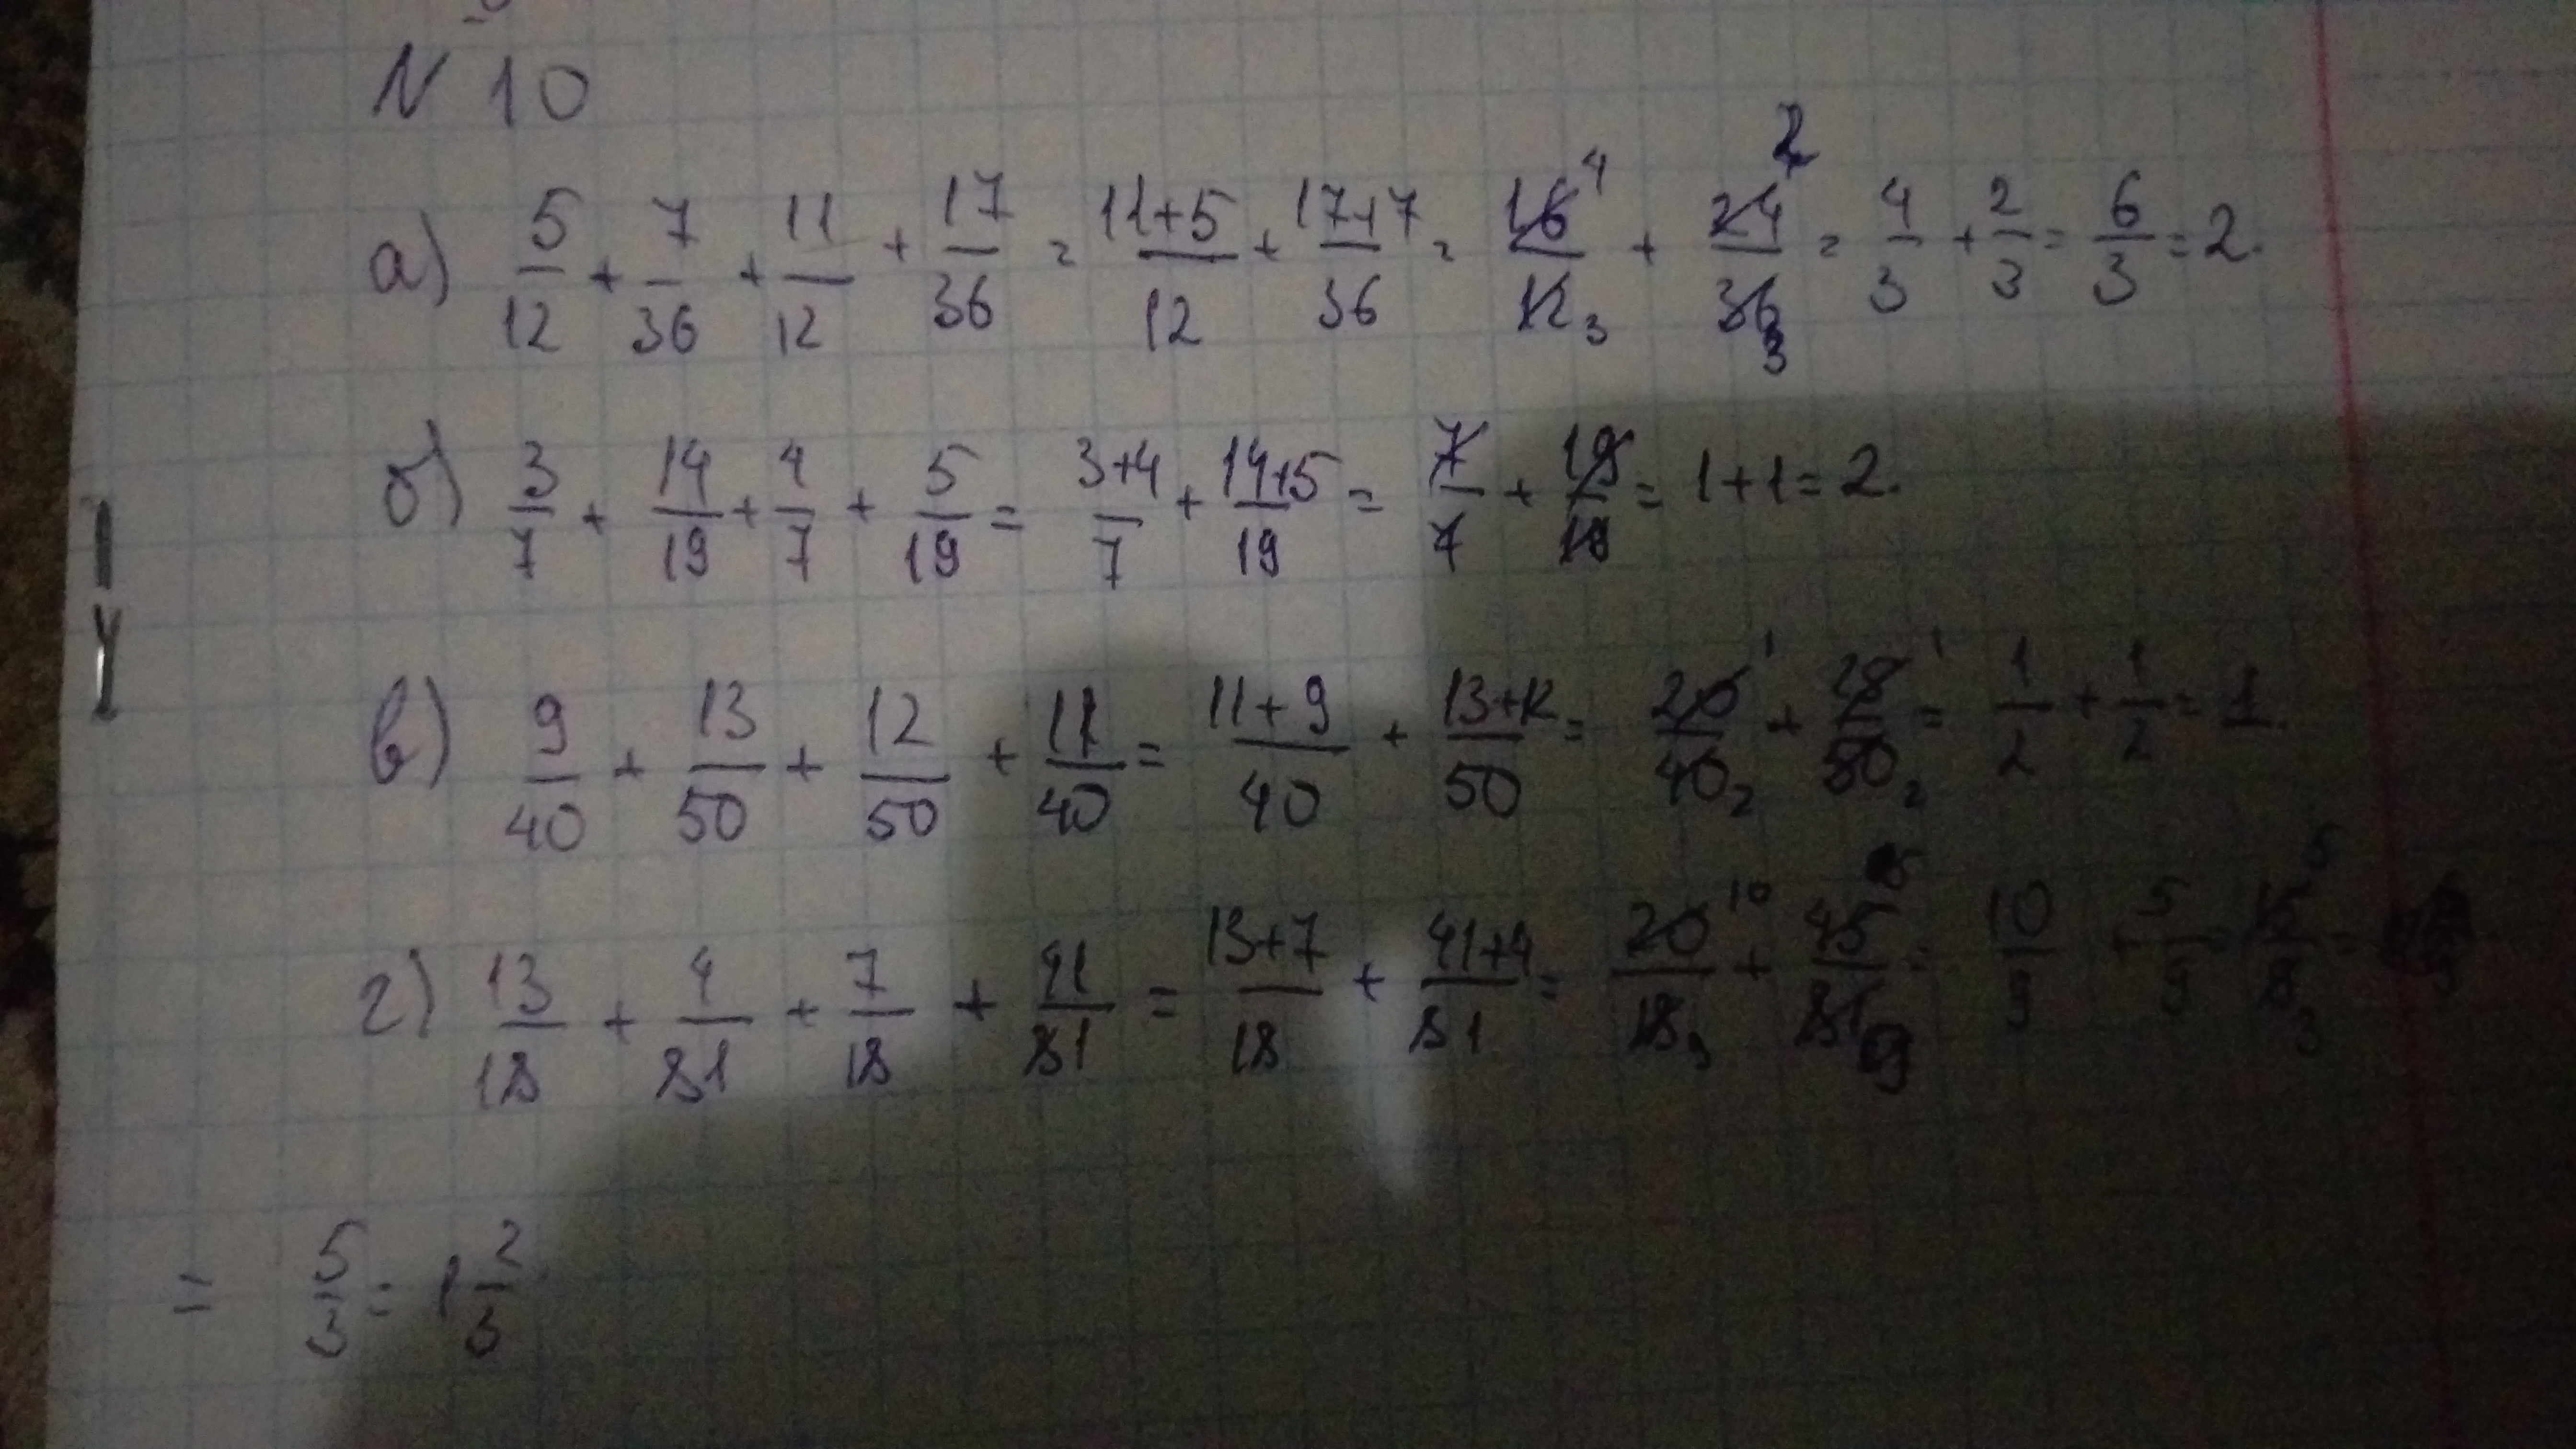 N 10
а) 5/12 + 7/36 + 11/12 + 17/36 = 11+5/12 + 17+7/36 = 16/12 4 3 + 24/36 2 3 = 4/3 + 2/3 = 6/3 = 2.
б) 3/7 + 14/19 + 4/7 + 5/19 = 3+4/7 + 14+5/19 = 7/7 + 19/19 = 1+1=2.
в) 9/40 + 13/50 + 12/50 + 11/40 = 11+9/40 + 13+12/50 = 20/40 1 2 + 25/50 1 2 = 1/2 + 1/2 = 1.
г) 13/18 + 4/81 + 7/18 + 41/81 = 13+7/18 + 41+4/81 = 20/18 10 9 + 45/81 5 9 = 10/9 + 5/9 = 15/9 5 3 =
= 5/3 = 1 2/3